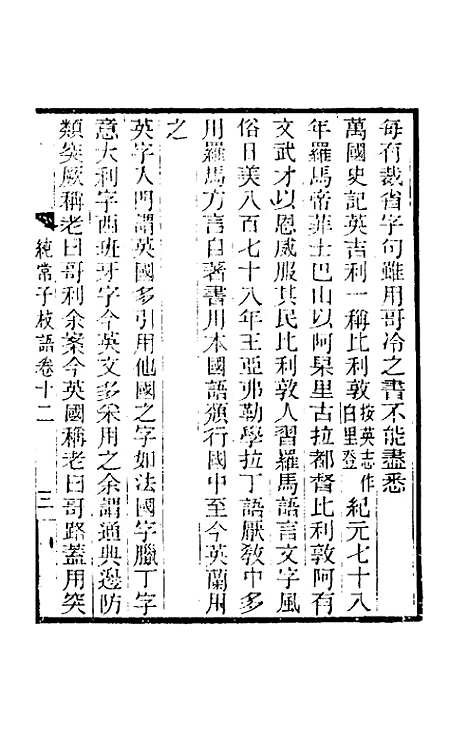 每有裁省字句雖用哥冷之書不能盡悉
萬國史記英吉利一稱比利敦按英志作白里登紀元七十八
年羅馬帝菲士巴山以阿杲里古拉都督比利敦阿有
文武才以恩威服其民比利敦人習羅馬語言文字風
俗日美八百七十八年王亞弗勒學拉丁語厭教中多
用羅馬方言自著書用本國語頒行國中至今英蘭用
之
英字入門謂英國多引用他國之字如法國字臘丁字
意大利字西班牙字今英文多采用之余謂通典邊防
類突厥稱老曰哥利余案今英國稱老曰哥路蓋用突
純常子枝語卷十二
三